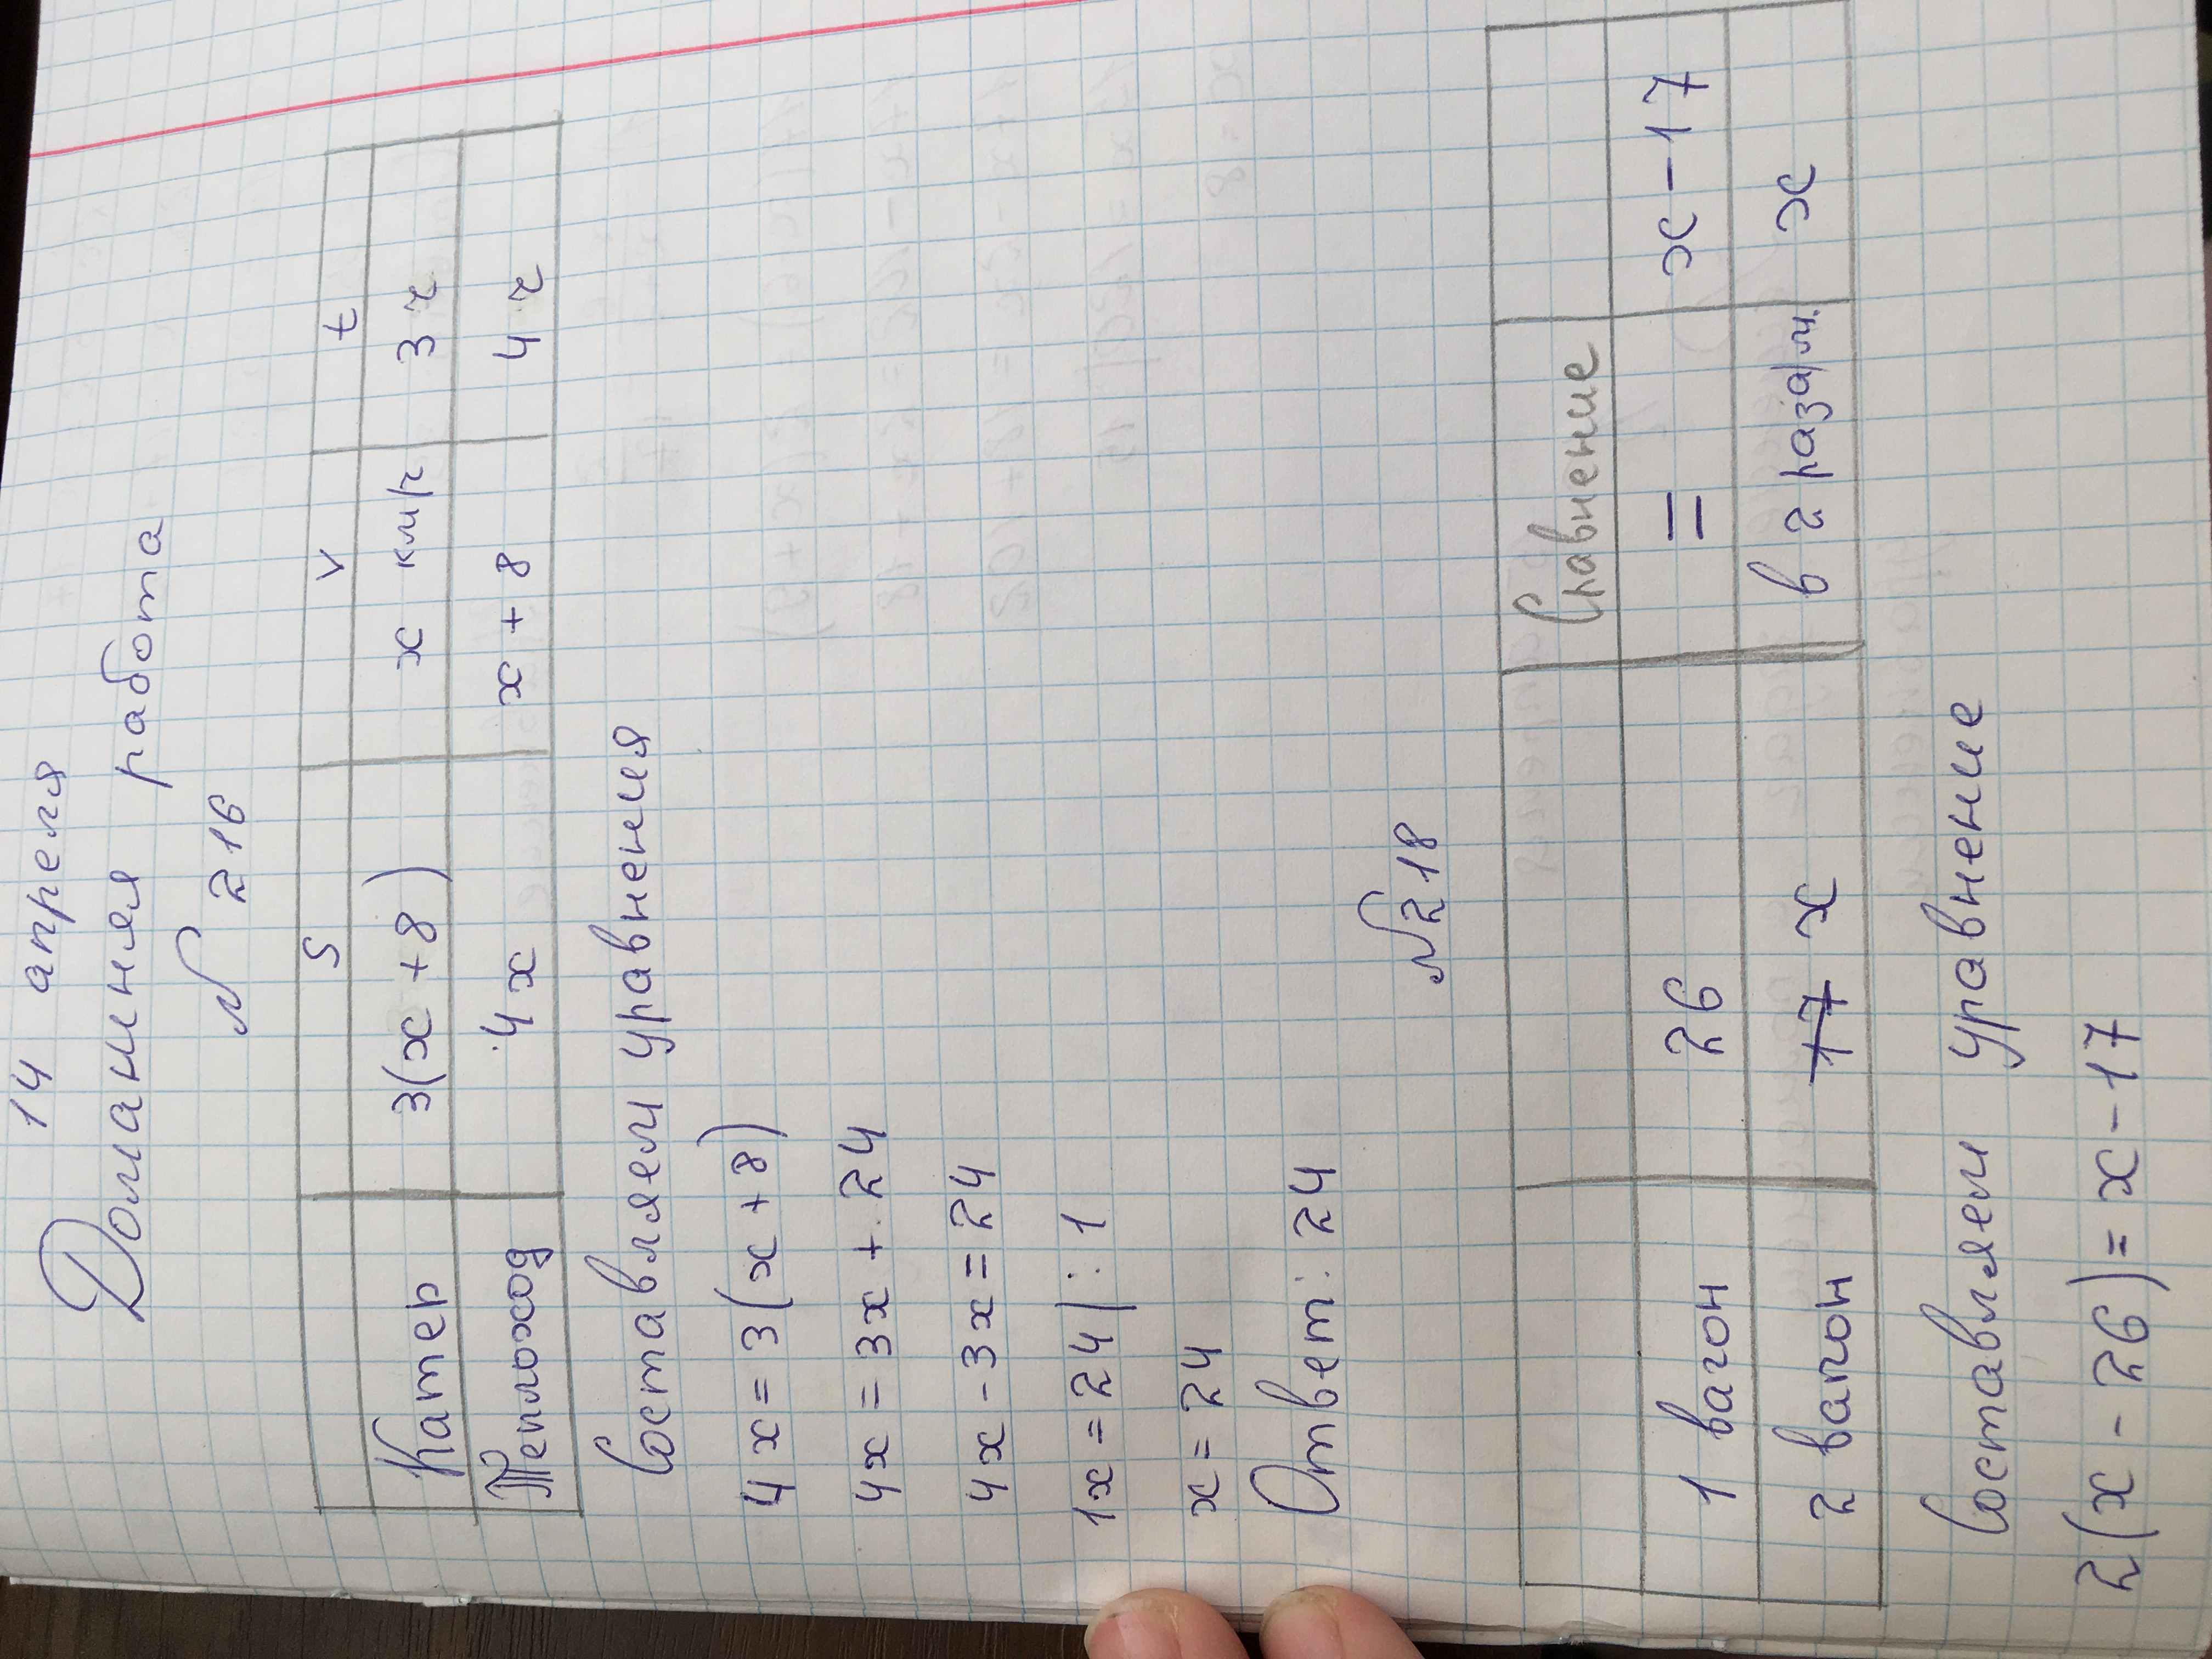 14 апреля
Домашняя работа
№ 216
S V t
Катер 3(x + 8) x км/ч 3 ч
Теплоход 4x x + 8 4 ч
Составляем уравнения
4x = 3(x + 8)
4x = 3x + 24
4x - 3x = 24
1x = 24 | : 1
x = 24
Ответ: 24
№ 218
Сравнение
1 вагон 26 = x - 17
2 вагон 17 x в 2 раза м. x
Составляем уравнение
2(x - 26) = x - 17